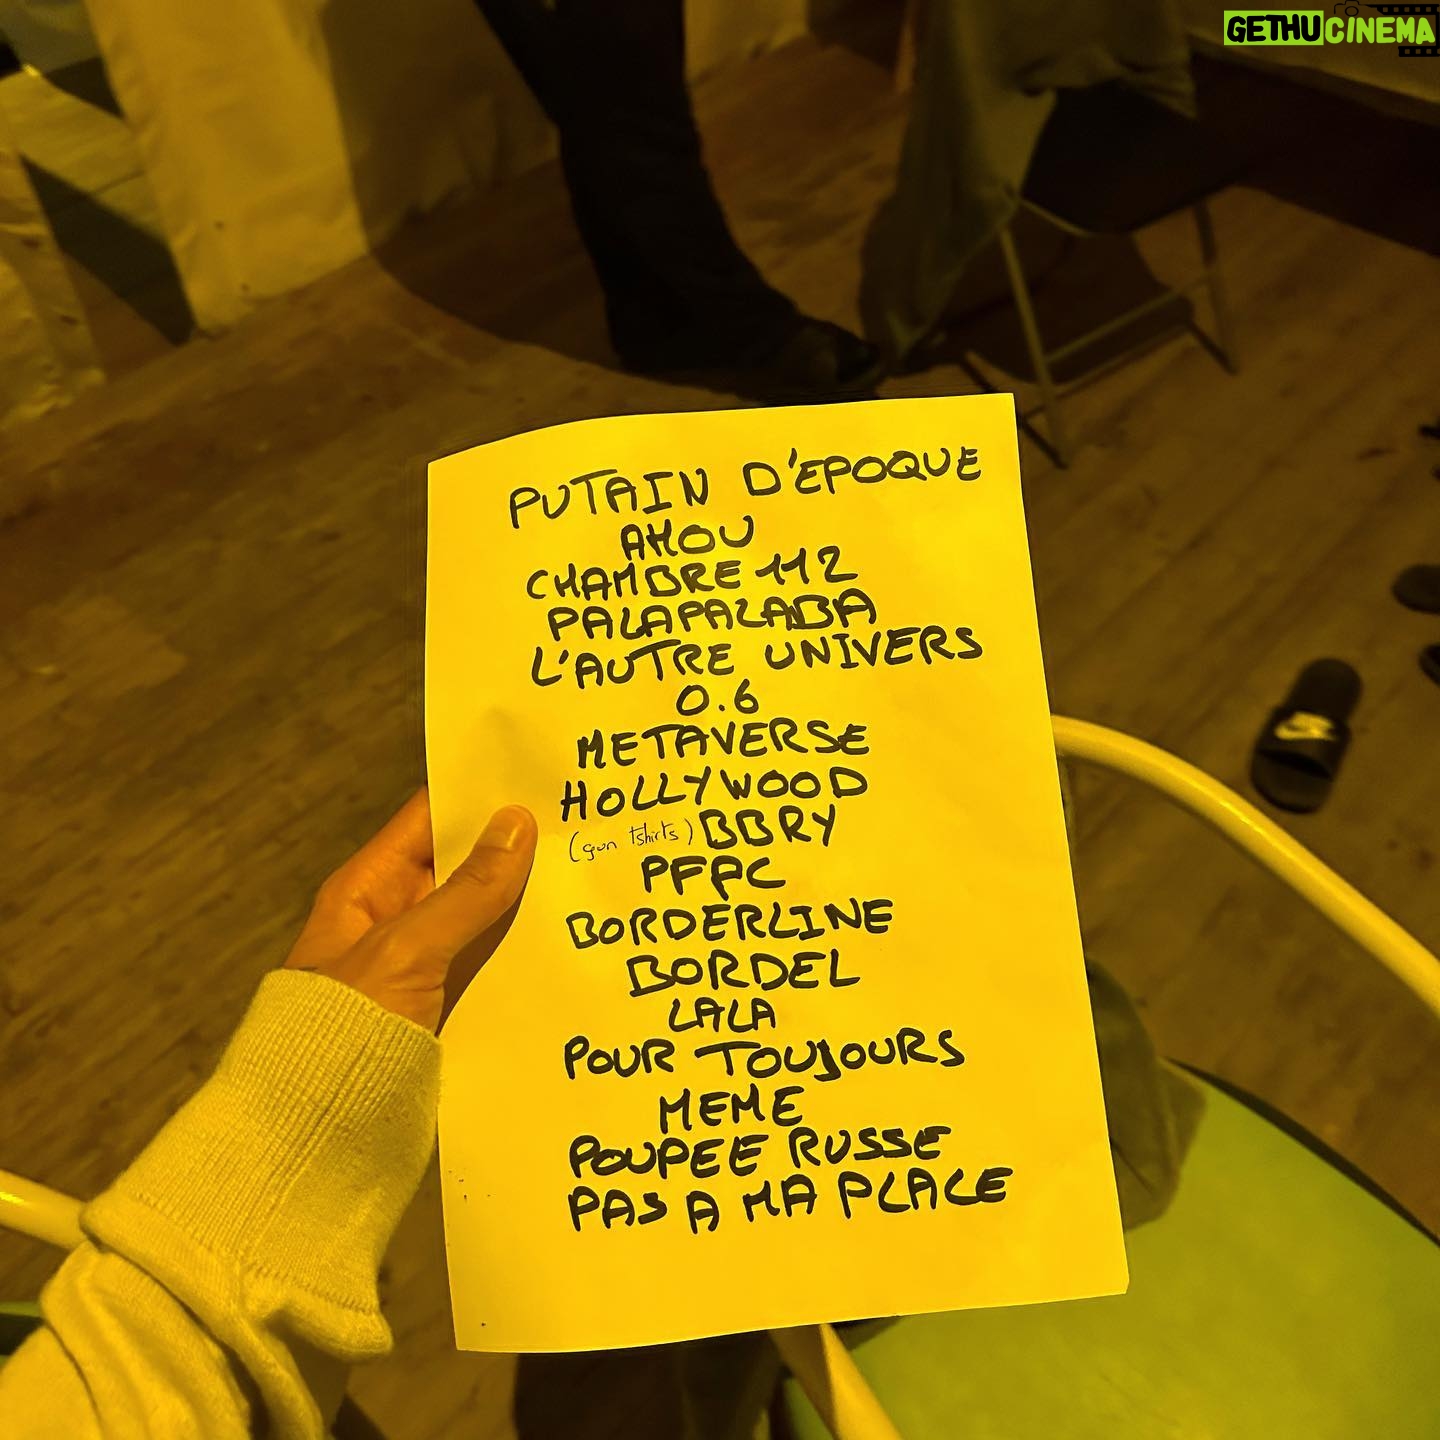 GETHUCINEMA
PUTAIN D'EPOQUE
AMOU
CHAMBRE 112
PALAPALABA
L'AUTRE UNIVERS
0.6
METAVERSE
HOLLYWOOD
(gun tshirts) BBRY
PFPC
BORDERLINE
BORDEL
LALA
POUR TOUJOURS
MEME
POUPEE RUSSE
PAS A MA PLACE